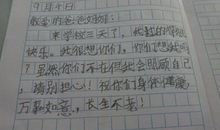 9月4日
敬爱的爸爸妈妈:
来学校三天了,我过的得很
快乐。我很想你们。你们想我吗
?虽然你们不在但我会照顾自己
,请别担心!祝你们身体健康
万事如意。,长生不老!